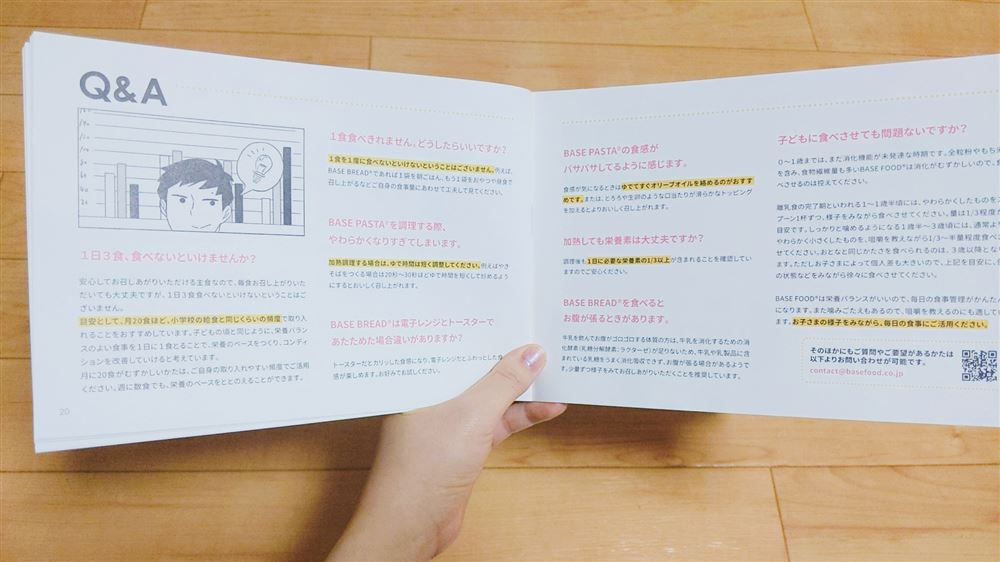 Q&A
1日3食、食べないといけませんか?
安心してお召しあがりいただける主食なので、毎食お召し上がりいた
だいても大丈夫ですが、1日3食食べないといけないということはご
ざいません。
目安として、月20食ほど、小学校の給食と同じくらいの頻度で取り入
れることをおすすめしています。子どもの頃と同じように、栄養バラン
スのよい食事を1日に1食とることで、栄養のベースをつくり、コンディ
ションを改善していけると考えています。
月に20食がむずかしいかたは、ご自身の取り入れやすい頻度でご活用
ください。週に数食でも、栄養のベースをととのえることができます。
20
1食食べきれません。どうしたらいいですか?
1食を1度に食べないといけないということはございません。例えば、
BASE BREAD®であれば1袋を朝ごはん、もう1袋をおやつや昼食で
召し上がるなどご自身の食事量にあわせて工夫して見てください。
BASE PASTA®を調理する際、
やわらかくなりすぎてしまいます。
加熱調理する場合は、ゆで時間は短く調整してください。例えばやき
そばをつくる場合は20秒〜30秒ほどゆで時間を短くして炒めるよう
にするとおいしく召し上がれます。
BASE BREAD®は電子レンジとトースターで
あたためた場合違いがありますか?
トースターだとカリッとした食感になり、電子レンジだとふわっとした食
感が楽しめます。お好みでお試しください。
BASE PASTA®の食感が
パサパサしてるように感じます。
食感が気になるときはゆでてすぐオリーブオイルを絡めるのがおすす
めです。または、とろろや生卵のような口当たりが滑らかなトッピング
を加えるとよりおいしく召し上がれます。
加熱しても栄養素は大丈夫ですか?
調理後も1日に必要な栄養素の1/3以上が含まれることを確認してい
ますのでご安心ください。
BASE BREAD®を食べると
お腹が張るときがあります。
牛乳を飲んでお腹がゴロゴロする体質の方は、牛乳を消化するための消
化酵素(乳糖分解酵素:ラクターゼ)が足りないため、牛乳や乳製品に含
まれている乳糖をうまく消化吸収できず、お腹が張る場合があるようで
す。少量ずつ様子をみてお召しあがりいただくことを推奨しています。
子どもに食べさせても問題ないですか?
0〜1歳までは、まだ消化機能が未発達な時期です。全粒粉やもち米
を含み、食物繊維量も多いBASE FOOD®は消化がむずかしいので、食
べさせるのは控えてください。
離乳食の完了期といわれる1〜1歳半頃には、やわらかくしたものをス
プーン1杯ずつ、様子をみながら食べさせてください。量は1/3程度が
目安です。しっかりと噛めるようになる1歳半〜3歳頃には、通常より
やわらかく小さくしたものを、咀嚼を教えながら1/3〜半量程度食べさ
せてください。おとなと同じかたさを食べられるのは、3歳以降となり
ます。ただしお子さまによって個人差も大きいので、上記を目安に、
の状態などをみながら徐々に食べさせてください。
BASE FOOD®は栄養バランスがいいので、毎日の食事管理がかんたん
になります。また噛みごたえもあるので、咀嚼を教えるのにも適してい
ます。お子さまの様子をみながら、毎日の食事にご活用ください。
そのほかにもご質問やご要望があるかたは
以下よりお問い合わせが可能です。
contact@basefood.co.jp